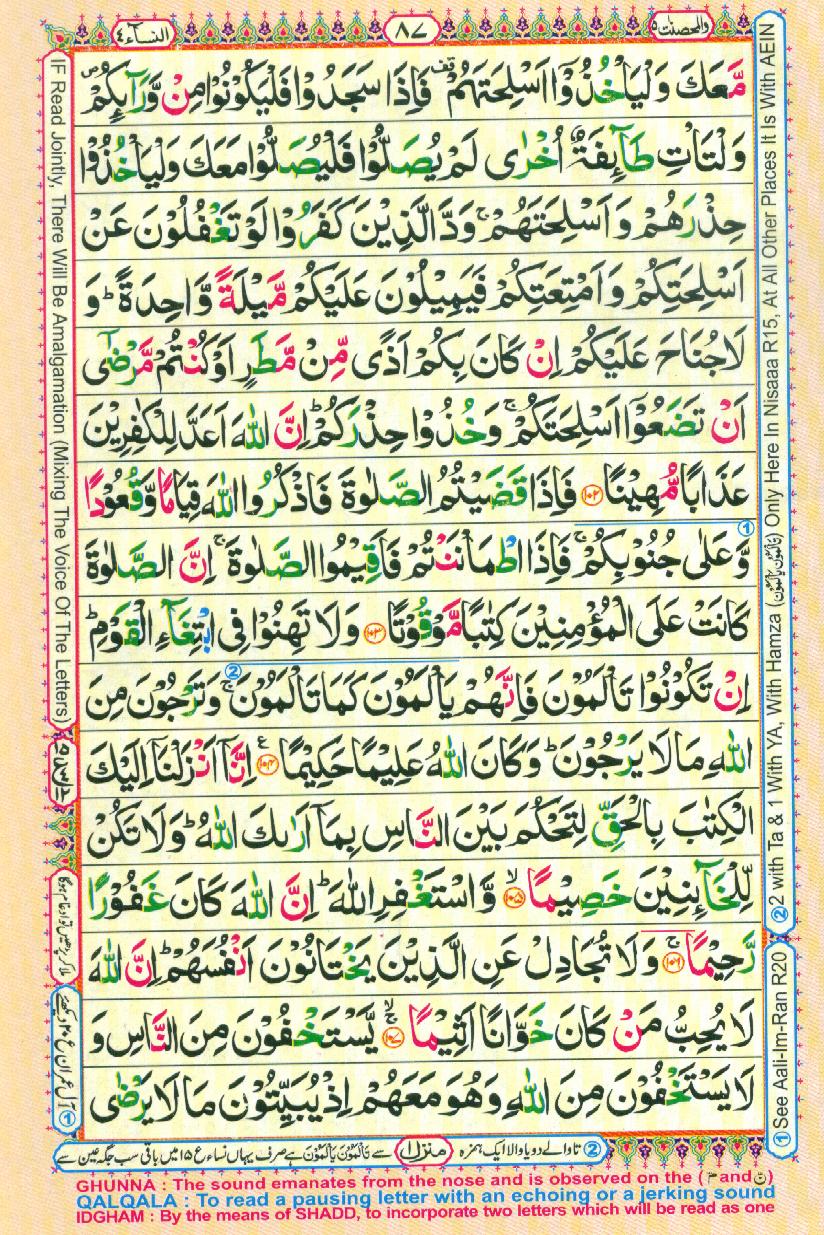 النسآء ٤
٨٧
والمحصنت ٥
مَّعَكَ وَلْيَاْخُذُوْۤا اَسْلِحَتَهُمْ ۫ فَاِذَا سَجَدُوْا فَلْيَكُوْنُوْا مِنْ وَّرَآىِٕكُمْ ۪
وَلْتَاْتِ طَآىِٕفَةٌ اُخْرٰى لَمْ يُصَلُّوْا فَلْيُصَلُّوْا مَعَكَ وَلْيَاْخُذُوْا
حِذْرَهُمْ وَاَسْلِحَتَهُمْ ۚ وَدَّ الَّذِيْنَ كَفَرُوْا لَوْ تَغْفُلُوْنَ عَنْ
اَسْلِحَتِكُمْ وَاَمْتِعَتِكُمْ فَيَمِيْلُوْنَ عَلَيْكُمْ مَّيْلَةً وَّاحِدَةً ؕ وَ
لَا جُنَاحَ عَلَيْكُمْ اِنْ كَانَ بِكُمْ اَذًى مِّنْ مَّطَرٍ اَوْ كُنْتُمْ مَّرْضٰۤى
اَنْ تَضَعُوْۤا اَسْلِحَتَكُمْ ۚ وَخُذُوْا حِذْرَكُمْ ؕ اِنَّ اللّٰهَ اَعَدَّ لِلْكٰفِرِيْنَ
عَذَابًا مُّهِيْنًا ۝۱۰۲ فَاِذَا قَضَيْتُمُ الصَّلٰوةَ فَاذْكُرُوا اللّٰهَ قِيَامًا وَّقُعُوْدًا
وَّعَلٰى جُنُوْبِكُمْ ۚ فَاِذَا اطْمَاْنَنْتُمْ فَاَقِيْمُوا الصَّلٰوةَ ۚ اِنَّ الصَّلٰوةَ
كَانَتْ عَلَى الْمُؤْمِنِيْنَ كِتٰبًا مَّوْقُوْتًا ۝۱۰۳ وَلَا تَهِنُوْا فِى ابْتِغَآءِ الْقَوْمِ ؕ
اِنْ تَكُوْنُوْا تَاْلَمُوْنَ فَاِنَّهُمْ يَاْلَمُوْنَ كَمَا تَاْلَمُوْنَ ۚ وَتَرْجُوْنَ مِنَ
اللّٰهِ مَا لَا يَرْجُوْنَ ؕ وَكَانَ اللّٰهُ عَلِيْمًا حَكِيْمًا ۝۱۰۴ اِنَّاۤ اَنْزَلْنَاۤ اِلَيْكَ
الْكِتٰبَ بِالْحَقِّ لِتَحْكُمَ بَيْنَ النَّاسِ بِمَاۤ اَرٰىكَ اللّٰهُ ؕ وَلَا تَكُنْ
لِّلْخَآىِٕنِيْنَ خَصِيْمًا ۝۱۰۵ وَّاسْتَغْفِرِ اللّٰهَ ؕ اِنَّ اللّٰهَ كَانَ غَفُوْرًا
رَّحِيْمًا ۝۱۰۶ وَلَا تُجَادِلْ عَنِ الَّذِيْنَ يَخْتَانُوْنَ اَنْفُسَهُمْ ؕ اِنَّ اللّٰهَ
لَا يُحِبُّ مَنْ كَانَ خَوَّانًا اَثِيْمًا ۝۱۰۷ يَّسْتَخْفُوْنَ مِنَ النَّاسِ وَ
لَا يَسْتَخْفُوْنَ مِنَ اللّٰهِ وَهُوَ مَعَهُمْ اِذْ يُبَيِّتُوْنَ مَا لَا يَرْضٰى
① See Aali-Im-Ran R20
② 2 with Ta & 1 With YA, With Hamza (تَاْلَمُوْنَ يَاْلَمُوْنَ) Only Here In Nisaaa R15, At All Other Places It Is With AEIN
IF Read Jointly, There Will Be Amalgamation (Mixing The Voice Of The Letters)
ملا کر پڑھیں تو ادغام ہوگا
① آل عمران ع ۲۰ دیکھئے
② تا والے دو یا والا ایک ہمزہ
منزل ۱
سے تَاْلَمُوْنَ يَاْلَمُوْنَ ہے صرف یہاں نساء ع ۱۵ میں باقی سب جگہ عین سے
GHUNNA : The sound emanates from the nose and is observed on the ( مّ and نّ )
QALQALA : To read a pausing letter with an echoing or a jerking sound
IDGHAM : By the means of SHADD, to incorporate two letters which will be read as one